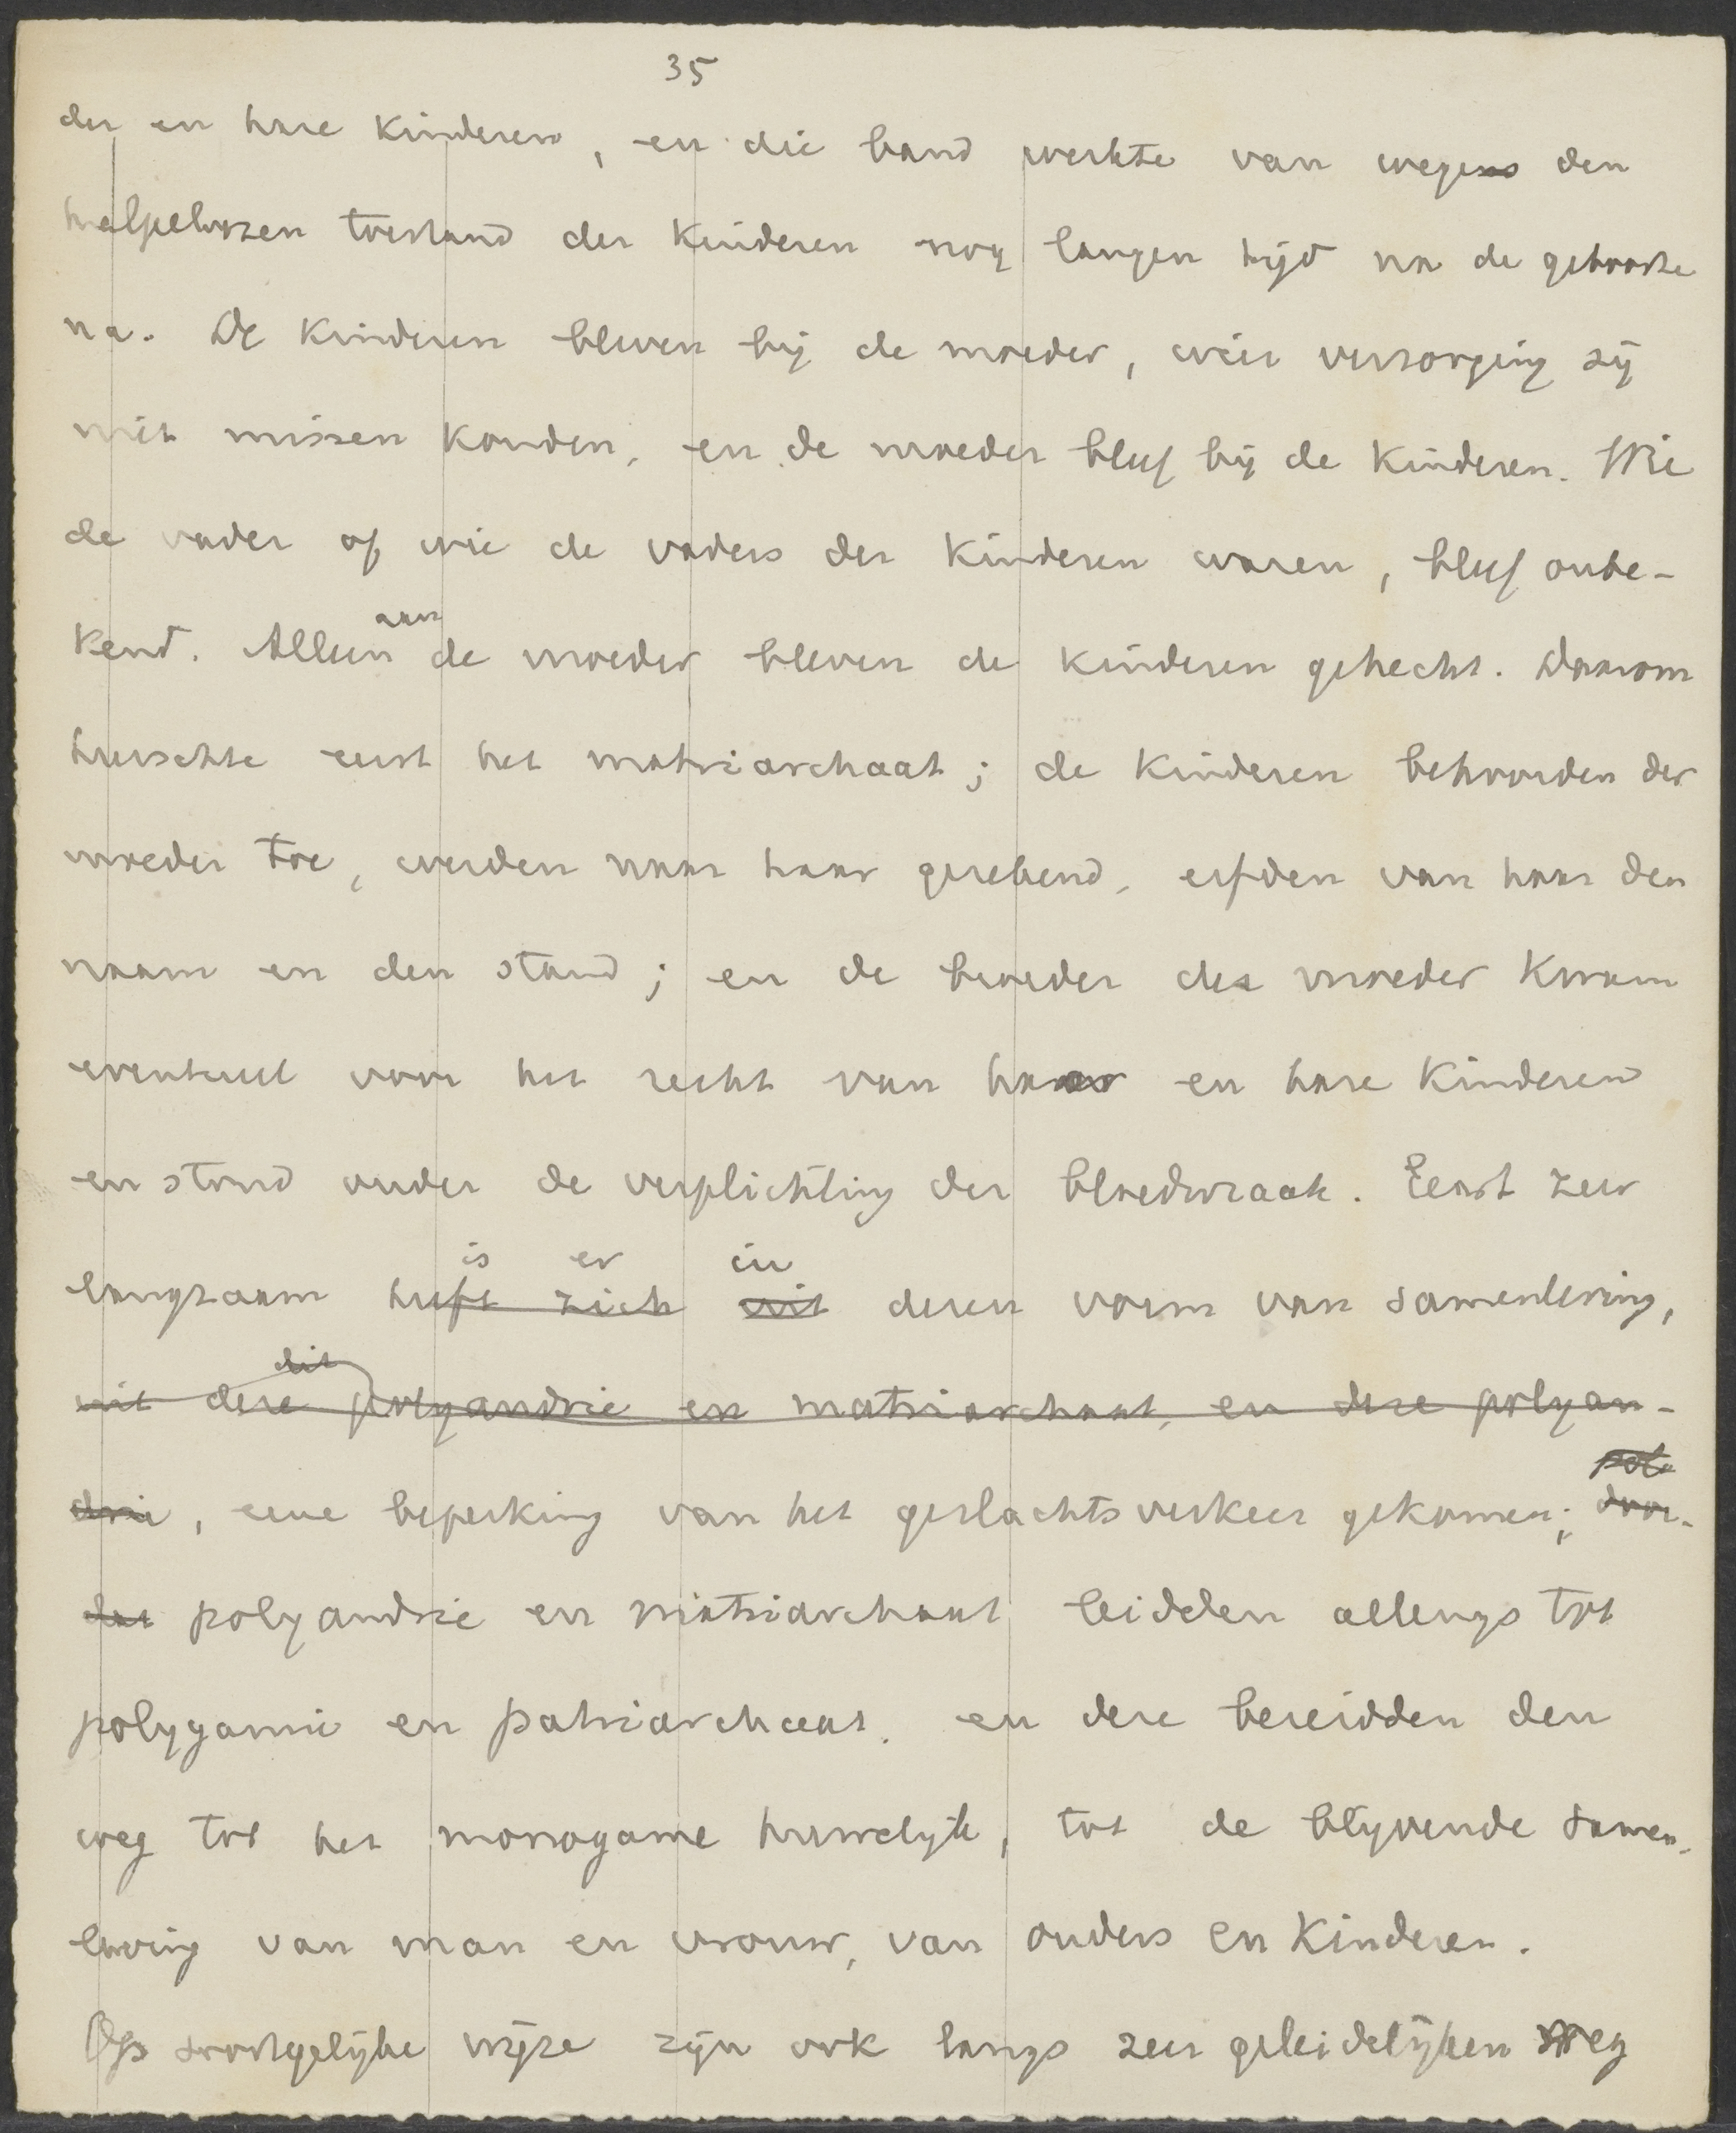 35
der en hare kinderen, en die band werkte van wegens den
hulpeloozen toestand der kinderen nog langen tijd na de geboorte
na. De kinderen bleven bij de moeder, wier verzorging zij
niet missen konden, en de moeder bleef bij de kinderen. Wie
de vader of wie de vaders der kinderen waren, bleef onbe-
kend. Alleen aan de moeder bleven de kinderen gehecht. Daarom
heerschte eerst het matriarchaat; de kinderen behoorden der
moeder toe, werden naar haar gerekend, erfden van haar den
naam en den stand; en de broeder der moeder kwam
eventueel voor het recht van haar en hare kinderen
en stond onder de verplichting der bloedwraak. Eerst zeer
is er in
langzaam heeft zich uit dezen vorm van samenleving,
dit
uit deze polyandrie en matriarchaat, en deze polyan-
drie, eene beperking van het geslachtsverkeer gekomen; door-
dat polyandrie en matriarchaat leidden allengs tot
polygamie en patriarchaat, en deze bereidden den
weg tot het monogame huwelijk, tot de blijvende samen-
leving van man en vrouw, van ouders en kinderen.
Op soortgelijke wijze zijn ook langs zeer geleidelijken weg